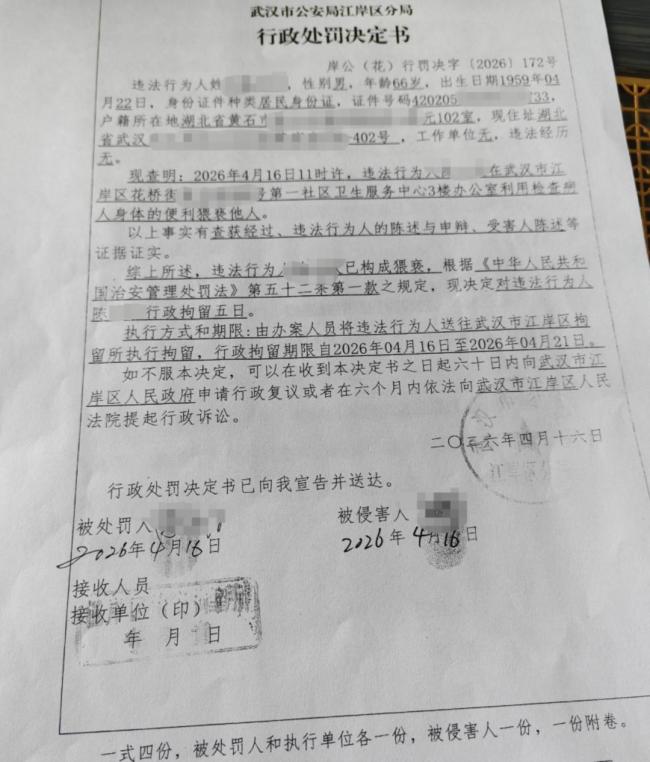 武汉市公安局江岸区分局
行政处罚决定书
岸公(花)行罚决字〔2026〕172号
违法行为人姓 性别男,年龄66岁,出生日期1959年04
月22日,身份证件种类居民身份证,证件号码420205 33,
户籍所在地湖北省黄石市 元102室,现住址湖北
省武汉 402号,工作单位无,违法经历
无。
现查明:2026年4月16日11时许,违法行为人 在武汉市江
岸区花桥街 号第一社区卫生服务中心3楼办公室利用检查病
人身体的便利猥亵他人。
以上事实有查获经过、违法行为人的陈述与申辩、受害人陈述等
证据证实。
综上所述,违法行为人 已构成猥亵,根据《中华人民共和
国治安管理处罚法》第五十二条第一款之规定,现决定对违法行为人
陈 行政拘留五日。
执行方式和期限:由办案人员将违法行为人送往武汉市江岸区拘
留所执行拘留,行政拘留期限自2026年04月16日至2026年04月21日。
如不服本决定,可以在收到本决定书之日起六十日内向武汉市江
岸区人民政府申请行政复议或者在六个月内依法向武汉市江岸区人民
法院提起行政诉讼。
二〇二六年四月十六日
江岸区分
行政处罚决定书已向我宣告并送达。
被处罚人 被侵害人
2026年4月16日 2026年4月16日
接收人员
接收单位(印)
年 月 日
一式四份,被处罚人和执行单位各一份,被侵害人一份,一份附卷。